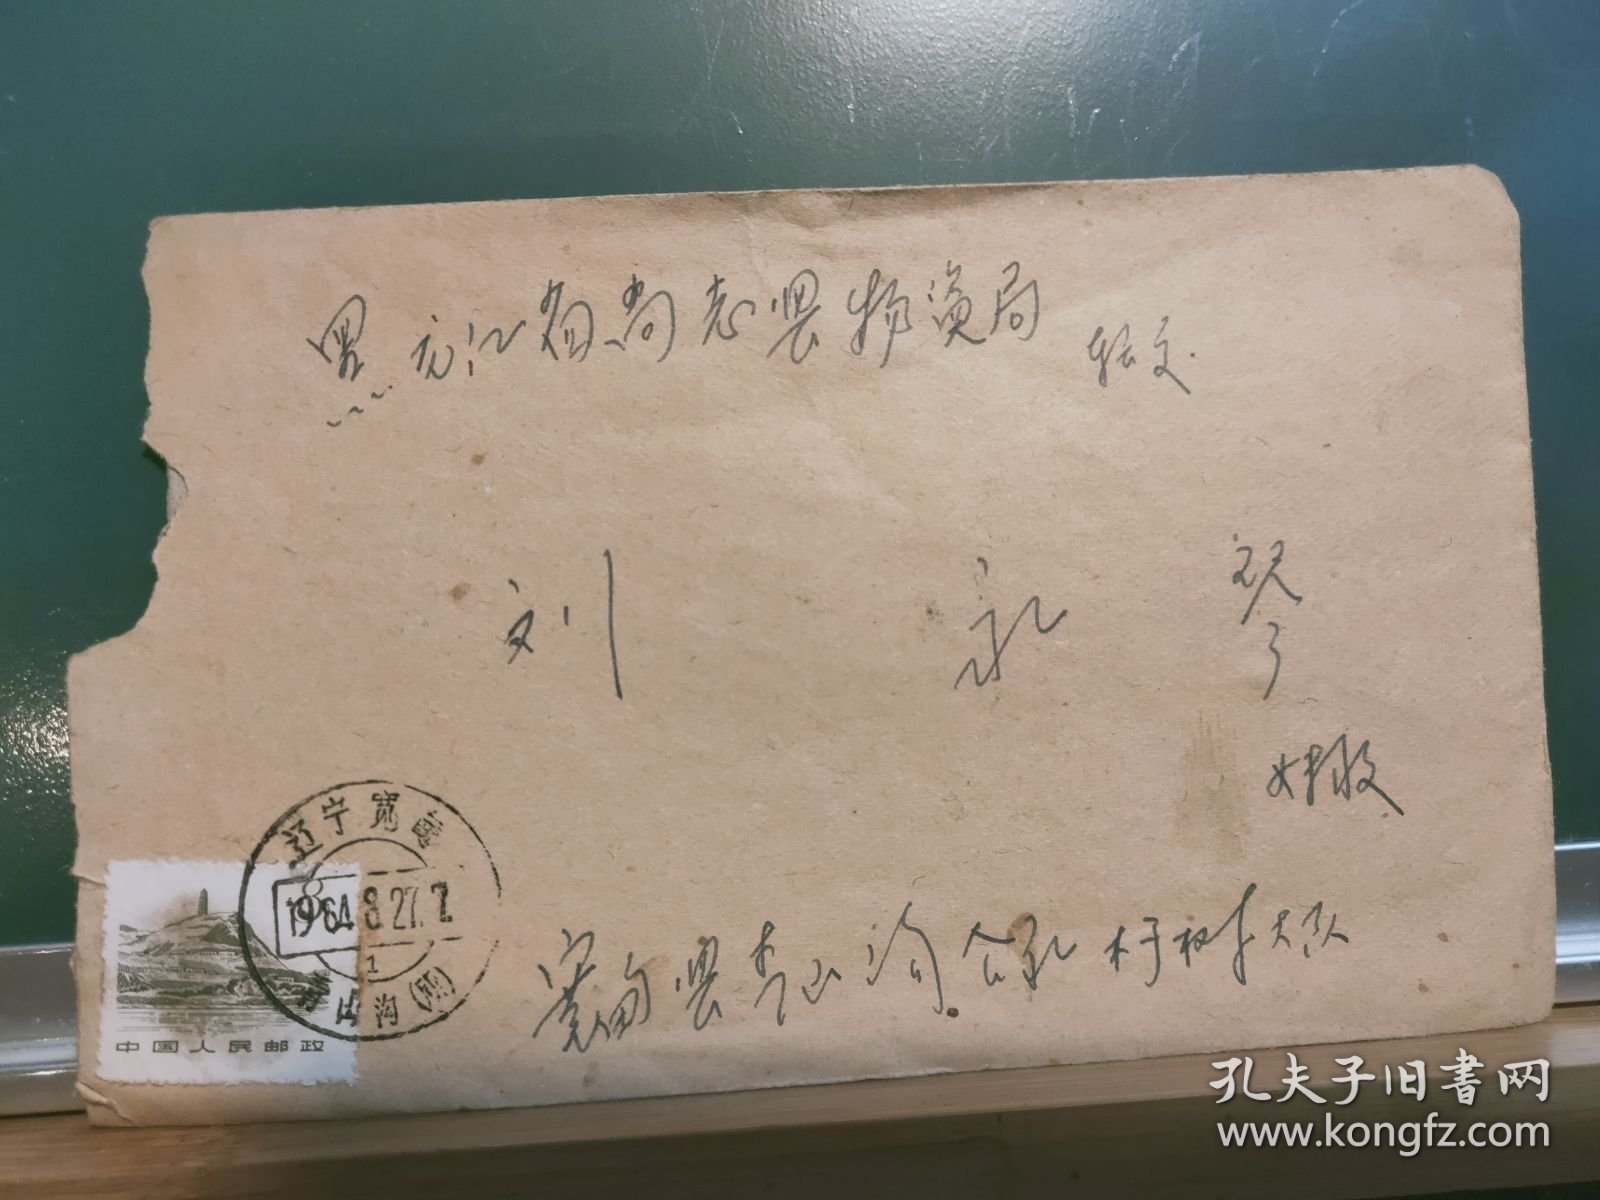 黑龙江省尚志县物资局 转交
刘 永 琴
妹收
宽甸县青山沟公社杉树大队
辽宁宽甸
1964.8.27.7
1
青山沟(所)
8
中国人民邮政
孔夫子旧書网
www.kongfz.com